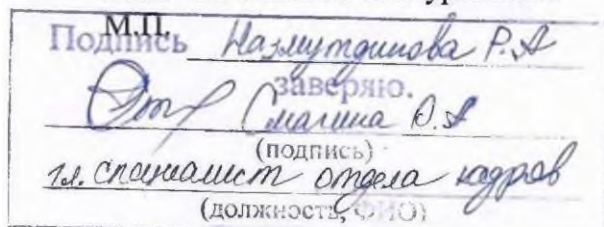 М.П.
Подпись Назмутдинова Р.А
заверяю.
Смагина О.А
(подпись)
гл. специалист отдела кадров
(должность, ФИО)